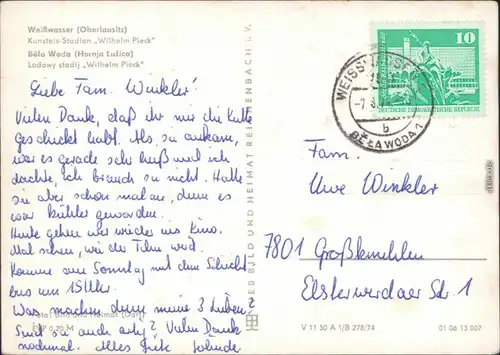 Weißwasser (Oberlausitz)
Kunsteis-Stadion „Wilhelm Pieck“
Běła Woda (Hornja Łužica)
Lodowy stadij „Wilhelm Pieck“
Liebe Fam. Winkler!
Vielen Dank, daß ihr mir die Kutte
geschickt habt. Als sie ankam,
war es gerade sehr heiß und ich
dachte, ich brauch sie nicht. Hatte
sie aber schon mal an, denn es
war kühler geworden.
Heute gehen wir wieder ins Kino.
Mal sehen, wie der Film wird.
Komme am Sonntag mit dem
bis um 15 Uhr.
Was machen denn meine 3 Lieben?
Sind sie auch artig? Vielen Dank
nochmal. Alles Gute
Foto: Bild und Heimat
EVP 0,20 M
VEB BILD UND HEIMAT REICHENBACH i. V.
10
DEUTSCHE DEMOKRATISCHE REPUBLIK
WEISSWASSER
b
BĚŁA WODA 1
Fam.
Uwe Winkler
7801 Großkmehlen
Elsterwerdaer Str. 1
V 11 50 A 1/B 278/74
01 06 13 007